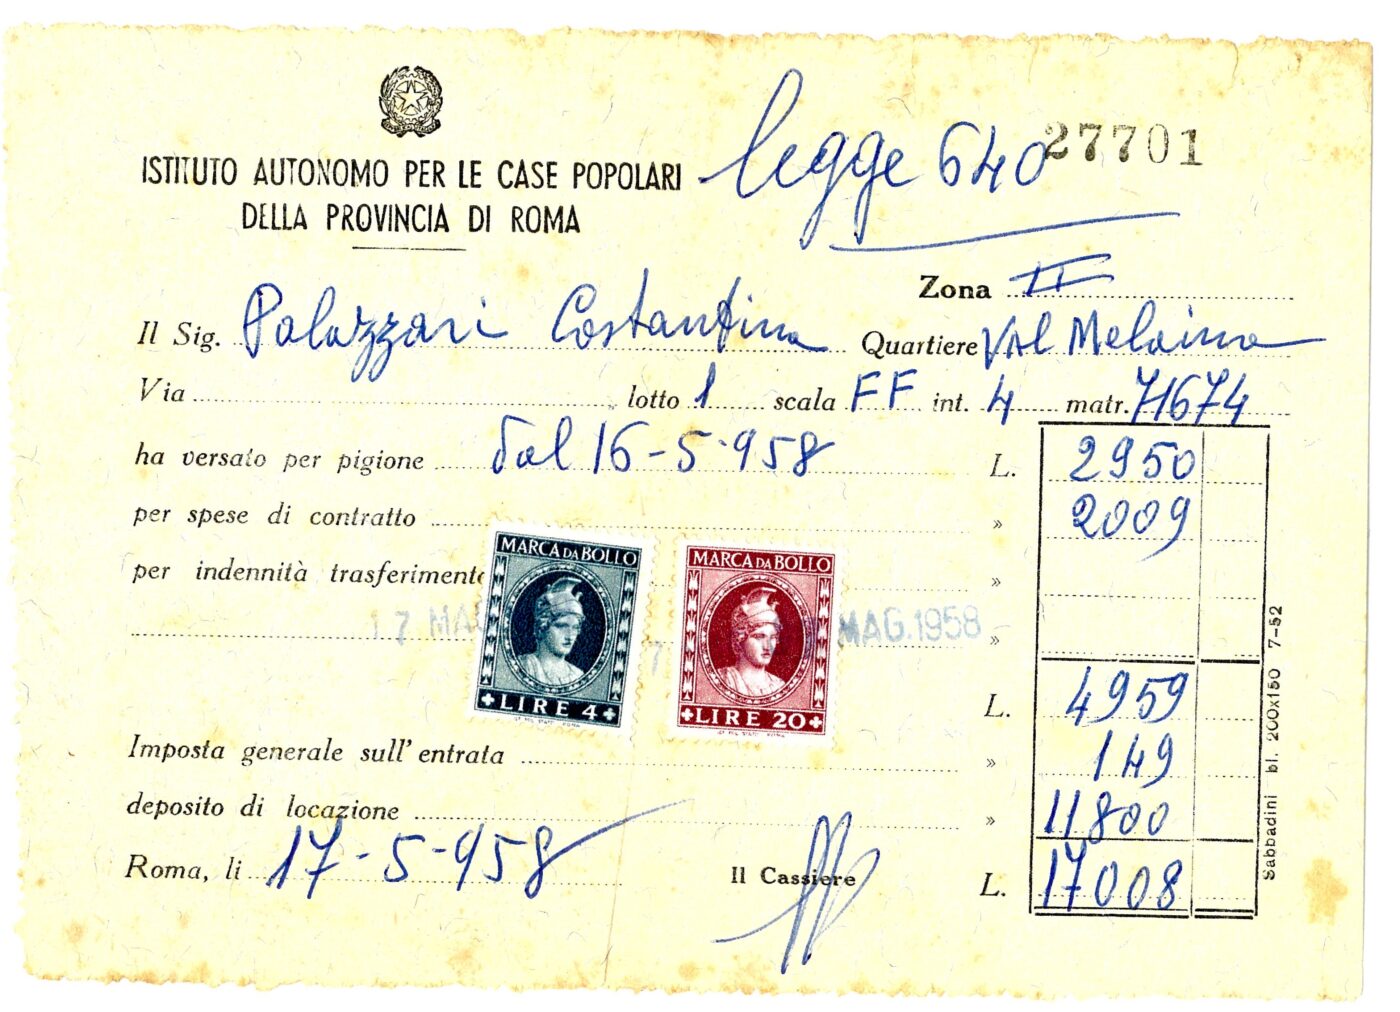 27701
ISTITUTO AUTONOMO PER LE CASE POPOLARI
DELLA PROVINCIA DI ROMA
legge 640
Zona II
Il Sig. Palazzari Costantina Quartiere Val Melaina
Via lotto 1 scala FF int. 4 matr. 71674
ha versato per pigione dal 16-5-958 L. 2950
per spese di contratto » 2009
per indennità trasferimento »
17 MAG. MAG. 1958 »
MARCA DA BOLLO
LIRE 4
MARCA DA BOLLO
LIRE 20
L. 4959
Imposta generale sull'entrata » 149
deposito di locazione » 11800
Roma, li 17-5-958 Il Cassiere L. 17008
Sabbadini bl. 200x150 7-52